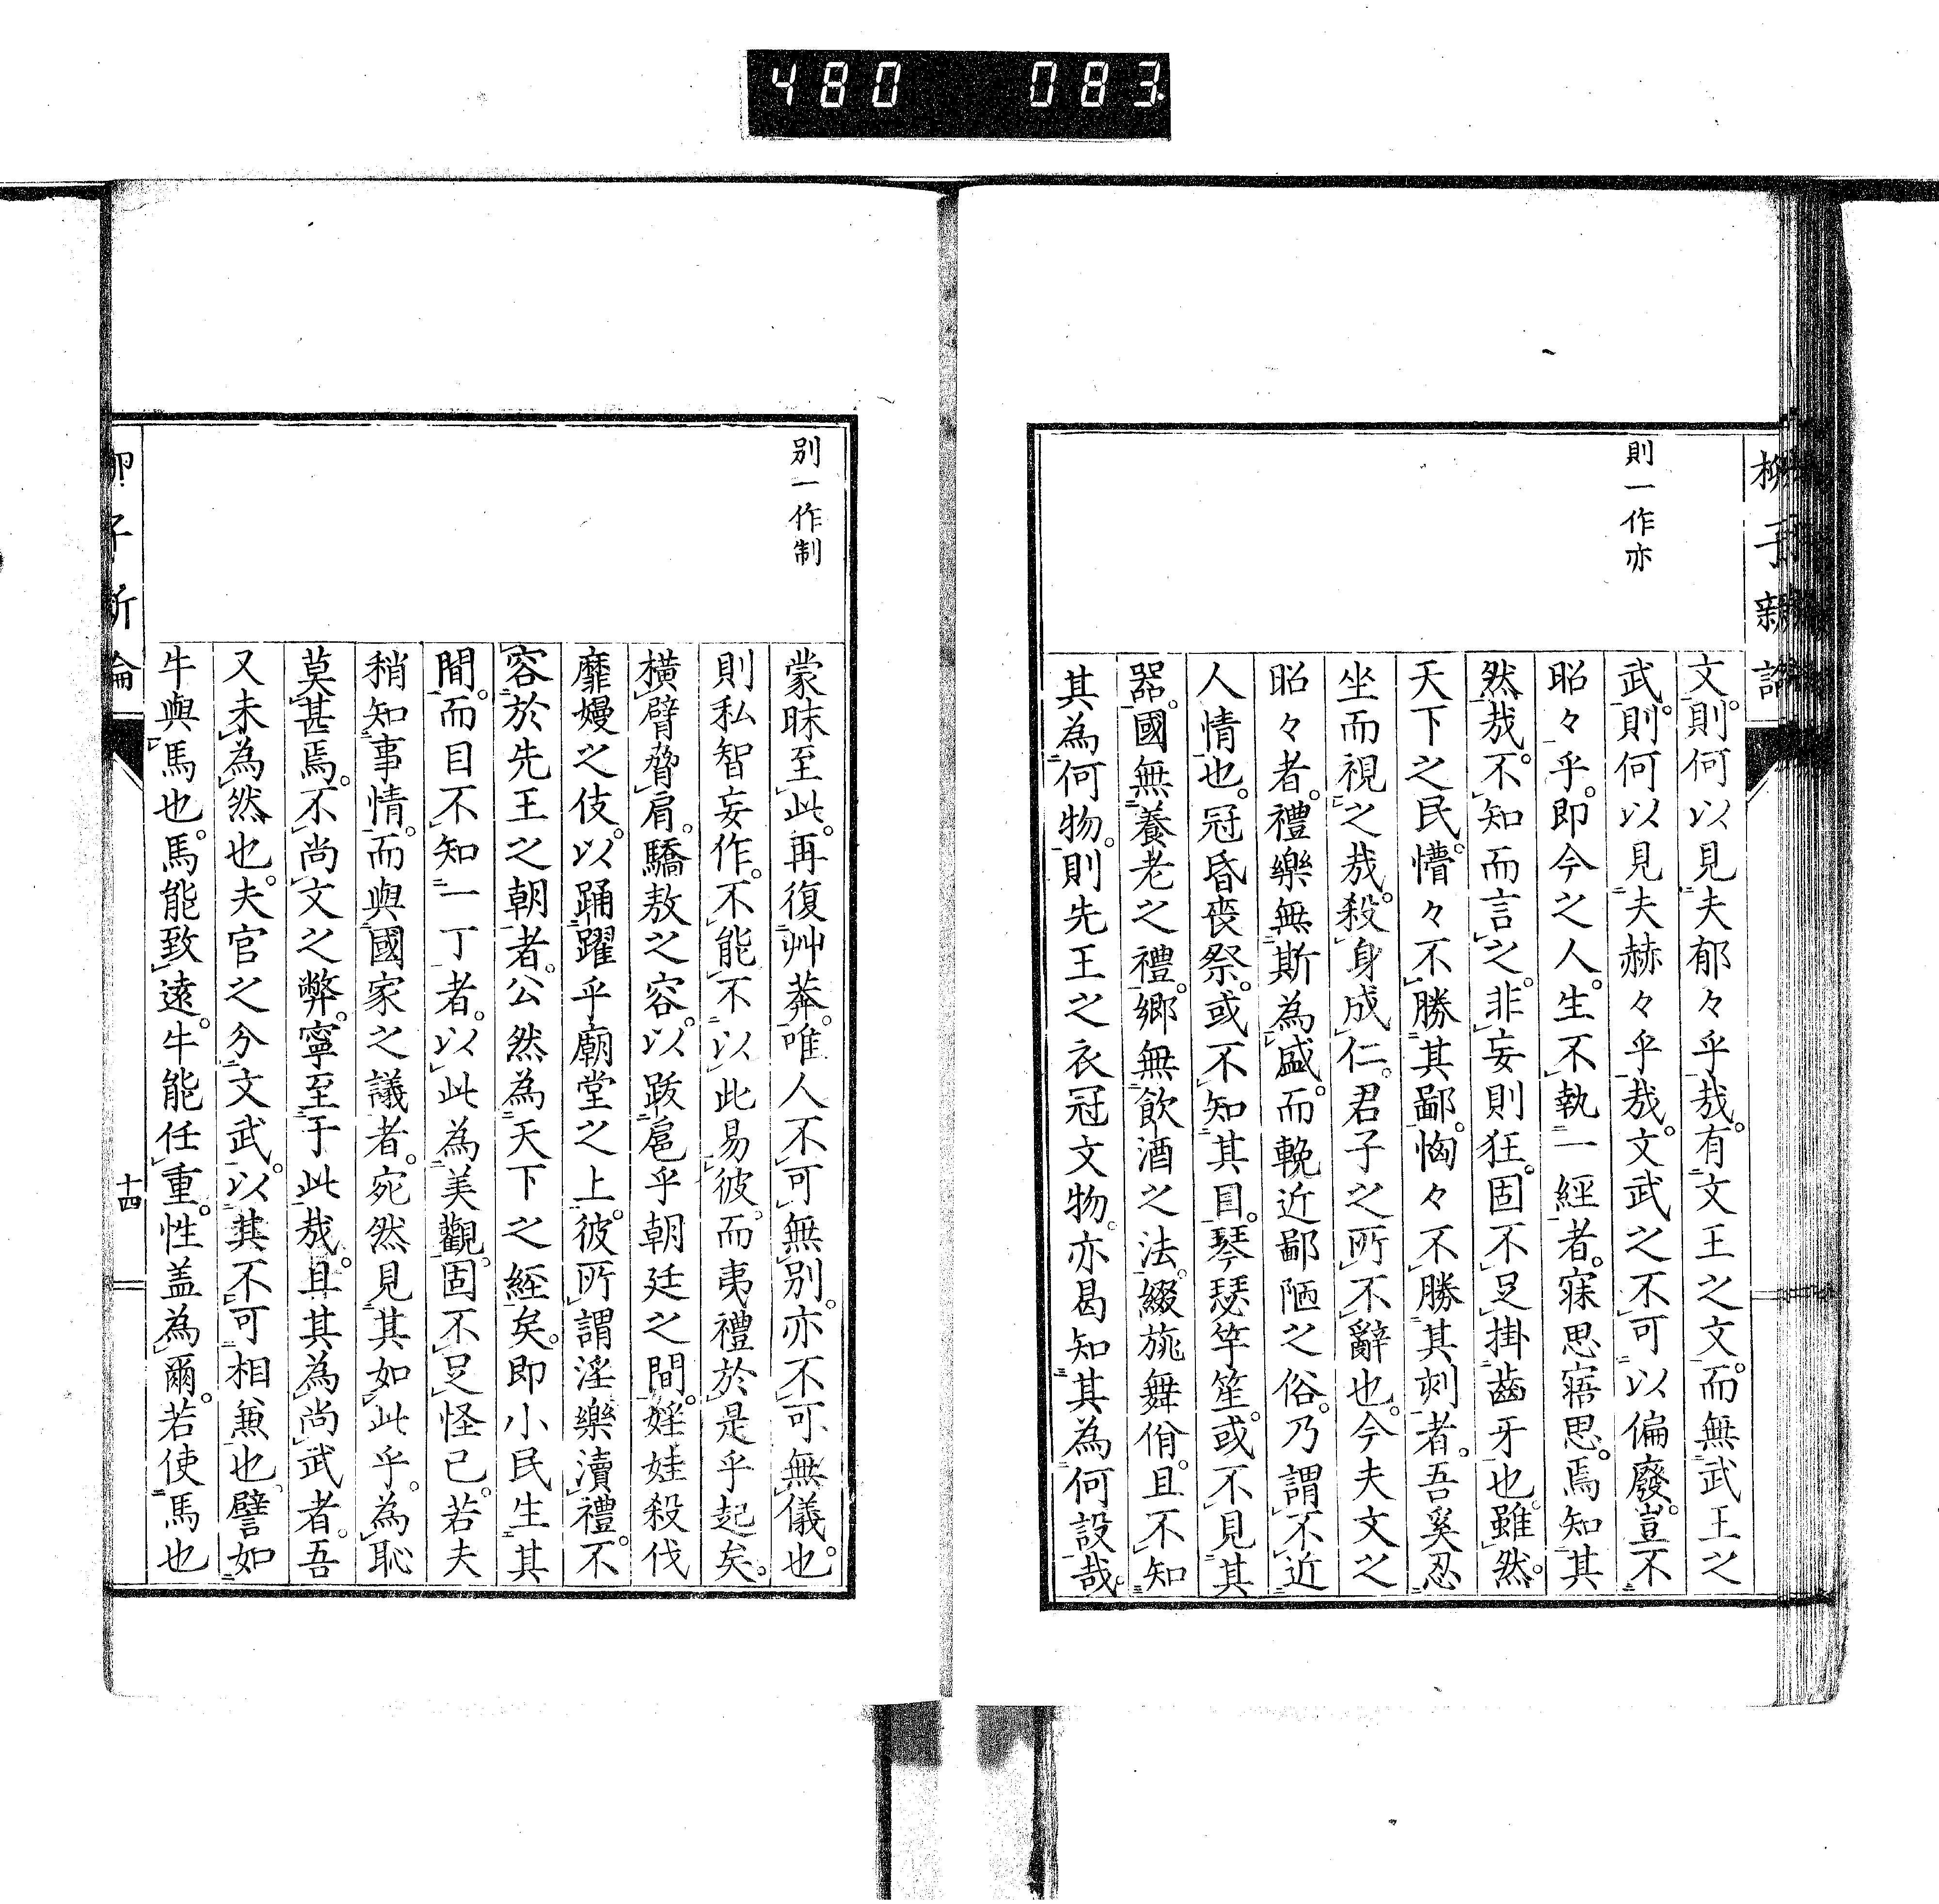 480 083
柳子新論
則一作亦
文。則何以見夫郁々乎哉。有文王之文。而無武王之
武。則何以見夫赫々乎哉。文武之不可以偏廢。豈不
昭々乎。即今之人。生不執一經者。寐思寤思。焉知其
然哉。不知而言之。非妄則狂。固不足掛齒牙也。雖然。
天下之民。懵々不勝其鄙。恟々不勝其刺者。吾奚忍
坐而視之哉。殺身成仁。君子之所不辭也。今夫文之
昭々者。禮樂無斯為盛。而輓近鄙陋之俗。乃謂不近
人情也。冠昏喪祭。或不知其目。琴瑟竽笙。或不見其
器。國無養老之禮。鄉無飲酒之法。綴旒舞佾。且不知
其為何物。則先王之衣冠文物。亦曷知其為何設哉。
別一作制
蒙昧至此。再復艸莽。唯人不可無別。亦不可無儀也。
則私智妄作。不能不以此易彼。而夷禮於是乎起矣。
橫臂脅肩。驕敖之容。以跋扈乎朝廷之間。婬娃殺伐
靡嫚之伎。以踊躍乎廟堂之上。彼所謂淫樂瀆禮。不
容於先王之朝者。公然為天下之經矣。即小民生其
間。而目不知一丁者。以此為美觀。固不足怪已。若夫
稍知事情。而與國家之議者。宛然見其如此乎。為恥
莫甚焉。不尚文之弊。寧至于此哉。且其為尚武者。吾
又未為然也。夫官之分文武。以其不可相兼也。譬如
牛與馬也。馬能致遠。牛能任重。性盖為爾。若使馬也
柳子新論
十四